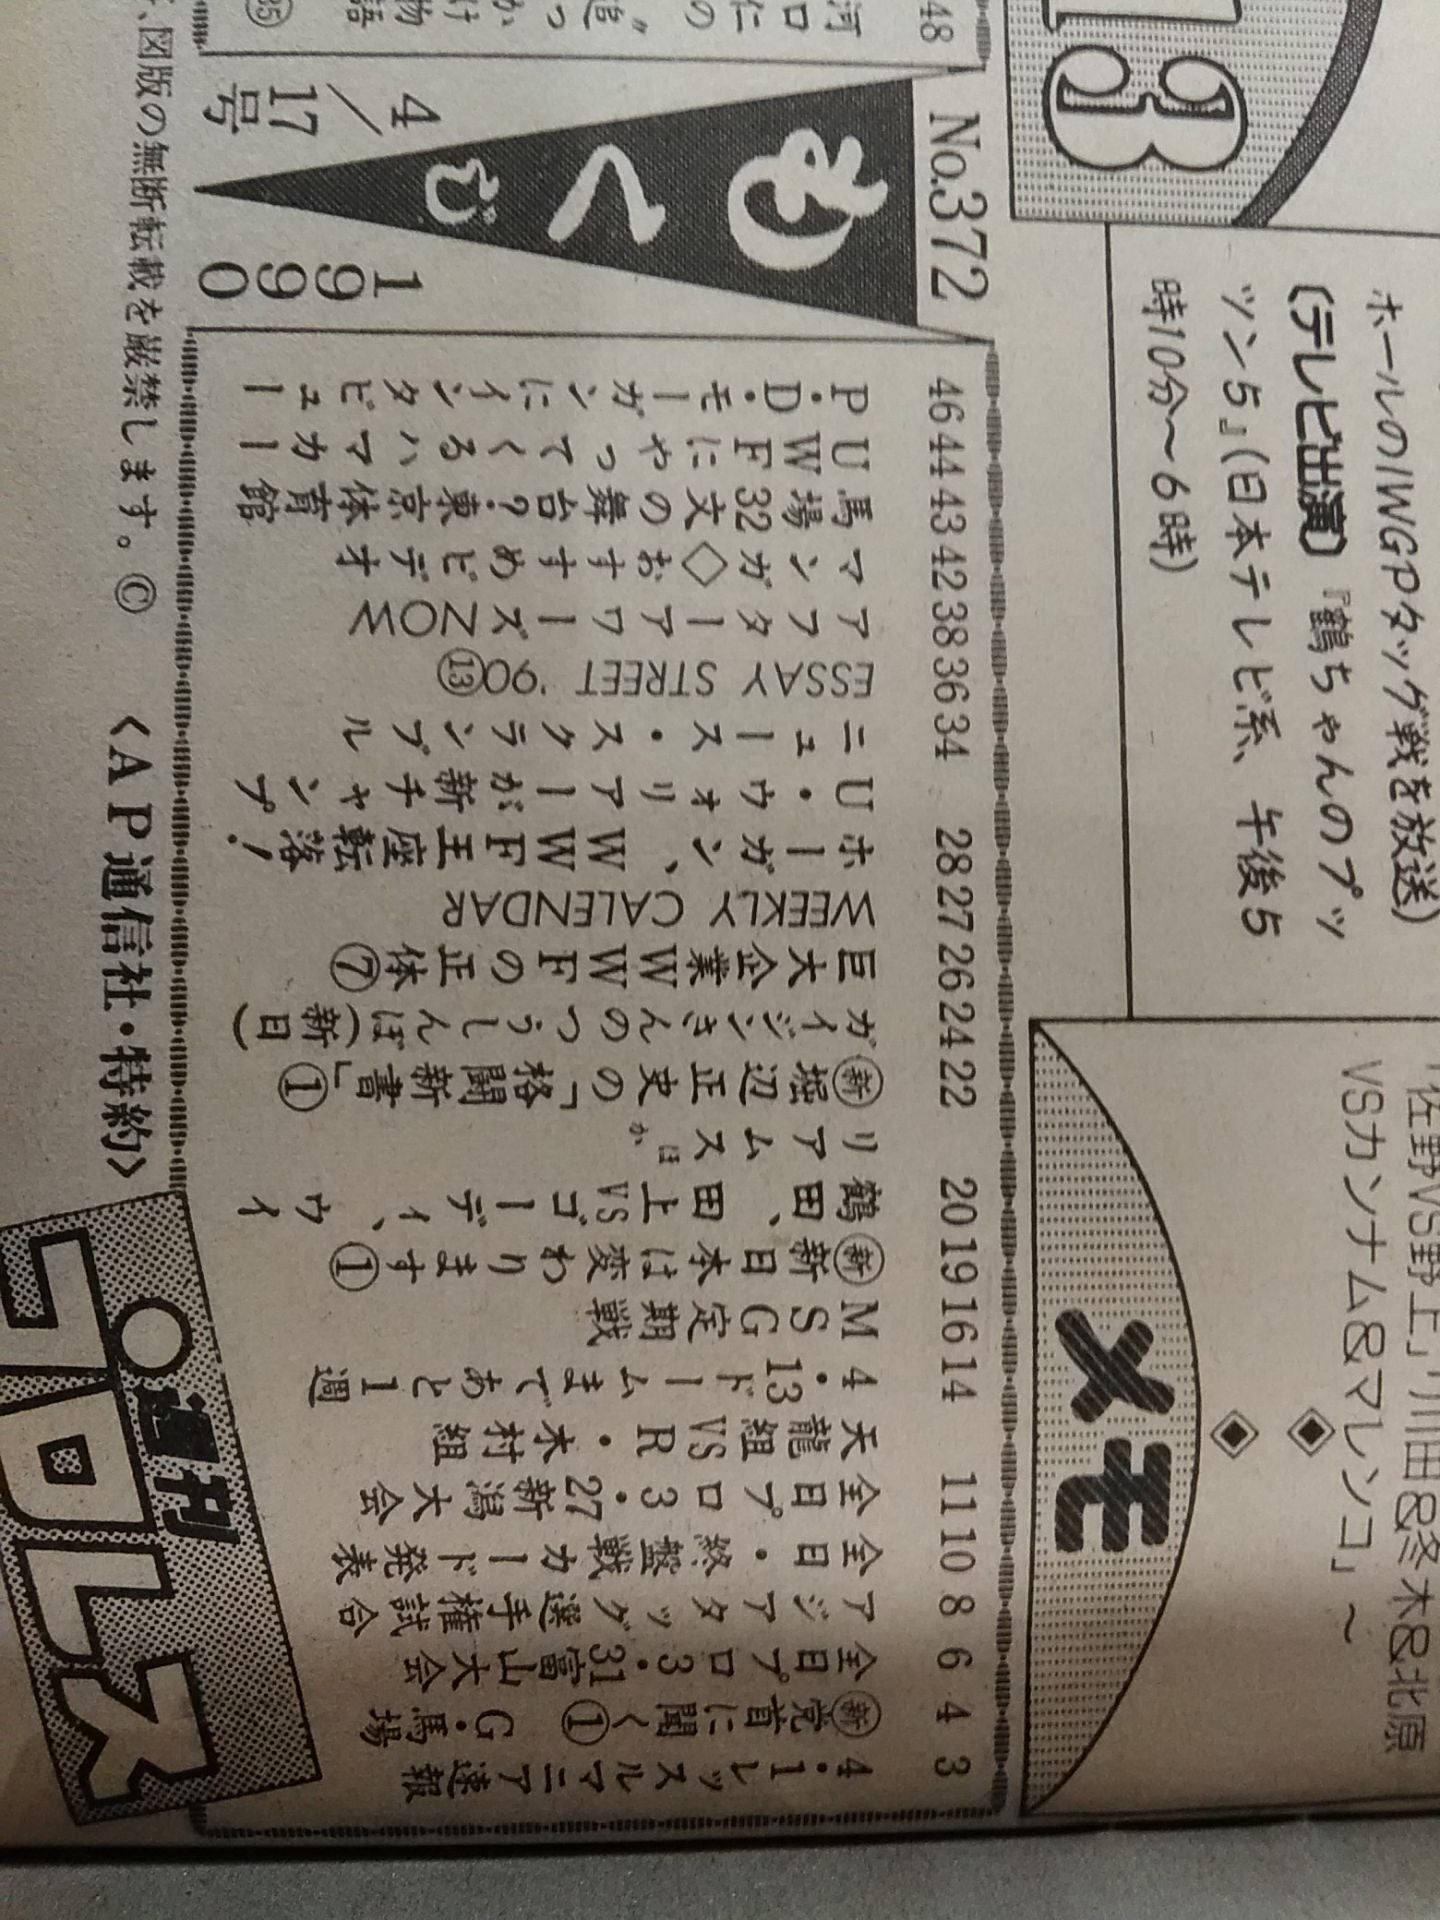 13
ホールのIWGPタッグ戦を放送)
〔テレビ出演〕『鶴ちゃんのプッ
ツン5』(日本テレビ系、午後5
時10分〜6時)
メモ
「佐野VS野上」「川田&冬木&北原
VSカンナム&マレンコ」〜
No.372
もくじ
4/17号
1990
3 4・1レッスルマニア速報
4 ㊟党首に聞く① G・馬場
6 全日プロ3・31富山大会
8 アジアタッグ選手権試合
10 全日・終盤戦カード発表
11 全日プロ3・27新潟大会
天龍組VSR・木村組
14 4・13ドームまであと1週
16 MSG定期戦
19 新 新日本は変わります①
20 鶴田、田上VSゴーディ、ウィ
リアムスほか
22 新 堀辺正史の「格闘新書」①
24 ガイジンさんのつうしんぼ(新日)
26 巨大企業WWFの正体⑦
27 WEEKLY CALENDAR
28 ホーガン、WWF王座転落!
U・ウォリアーが新チャンプ
34 ニュース・スクランブル
36 ESSAY STREET '90⑬
38 アフターアワーズNOW
42 マンガ◇おすすめビデオ
43 馬場32文の舞台?・東京体育館
44 UWFにやってくるハマカー
46 P・D・モーガンにインタビュー
48 河口仁の"追っかけ物語
週刊プロレス
図版の無断転載を厳禁します。© 〈AP通信社・特約〉